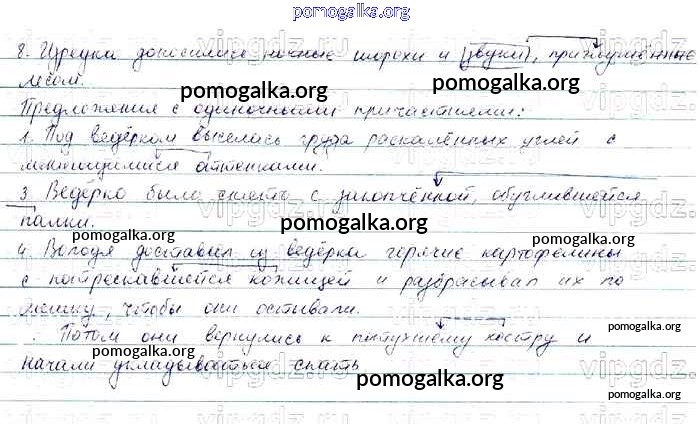 pomogalka.org
8. Изредка доносились ночные шорохи и звуки, приглушенные
лесом.
Предложения с одиночными причастиями:
1. Под ведёрком виселась груда раскалённых углей с
меняющимися оттенками.
3. Ведёрко было снято с закопчённой, обуглившейся
палки.
4. Володя доставал из ведёрка горячие картофелины
с потрескавшейся кожицей и разбрасывал их по
мешку, чтобы они остывали.
Потом они вернулись к потухшему костру и
начали укладываться спать
pomogalka.org
pomogalka.org
pomogalka.org
pomogalka.org
pomogalka.org
pomogalka.org
pomogalka.org
pomogalka.org
pomogalka.org
pomogalka.org
pomogalka.org